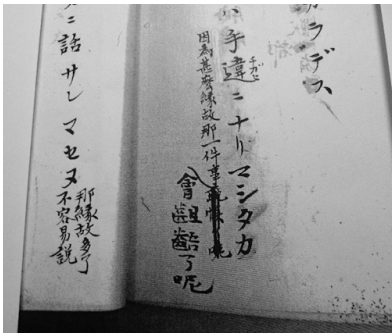 カラデス
手違ニナリマシタカ
チガヒ
因為甚麼緣故那一件事
會齟齬了呢
ニ話サレマセヌ
那緣故多了
不容易說